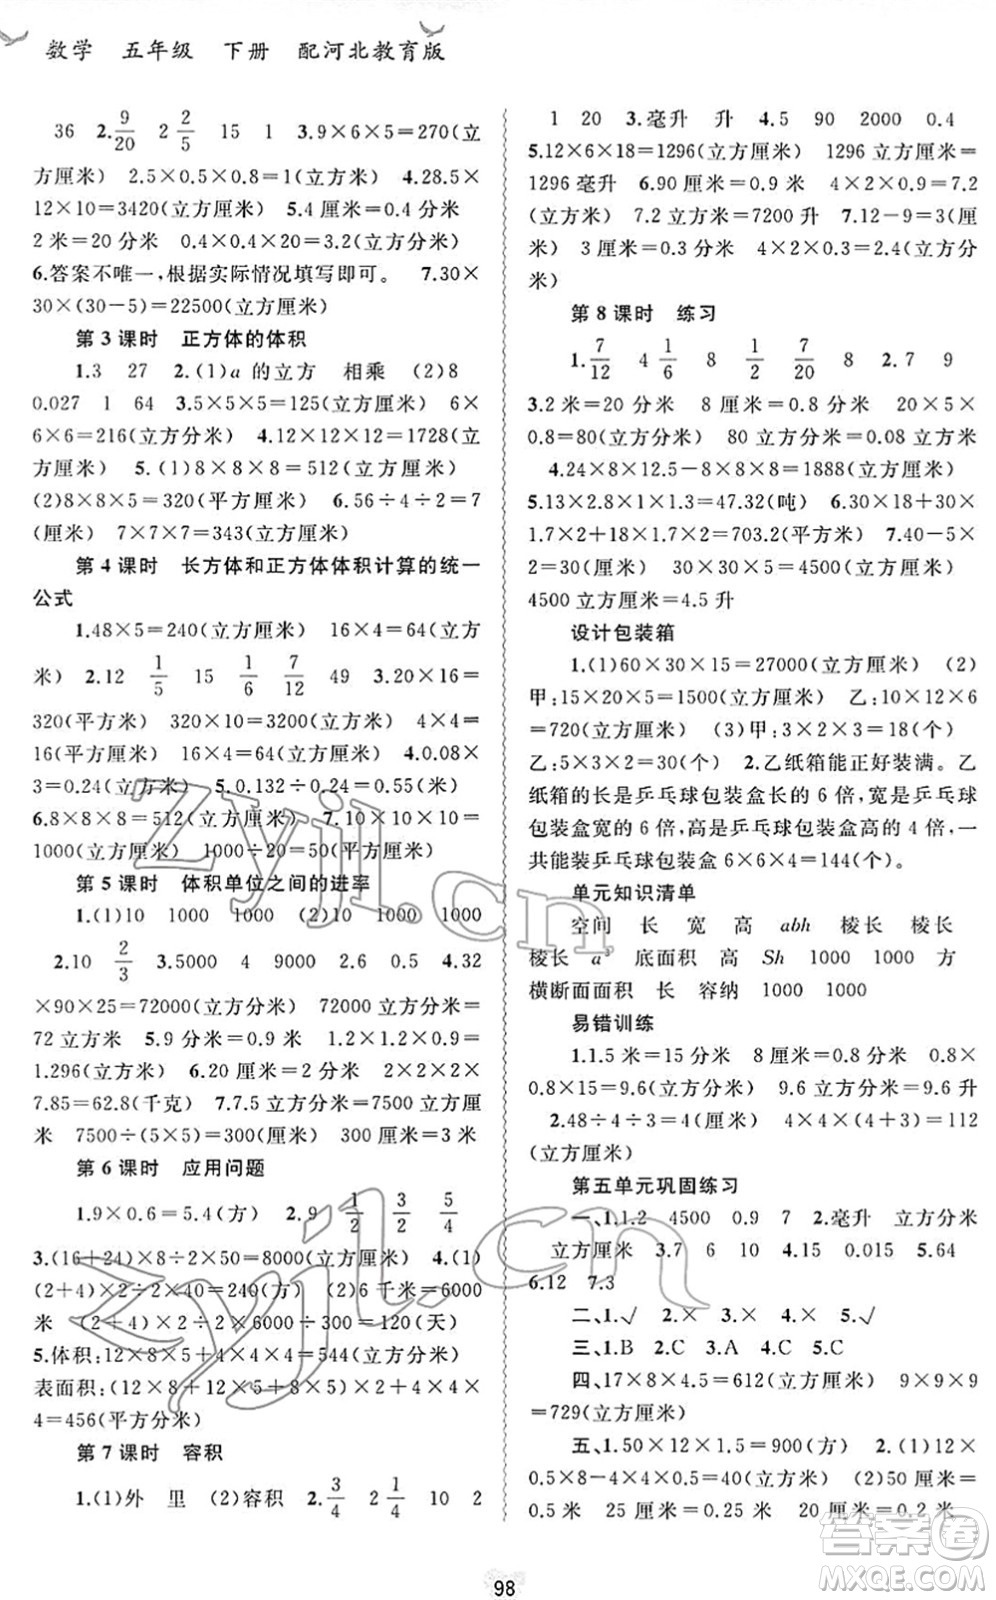 数学 五年级 下册 配河北教育版
36 2.9/20 2 2/5 15 1 3.9×6×5=270(立
方厘米) 2.5×0.5×0.8=1(立方米) 4.28.5×
12×10=3420(立方厘米) 5.4厘米=0.4分米
2米=20分米 0.4×0.4×20=3.2(立方分米)
6.答案不唯一,根据实际情况填写即可。 7.30×
30×(30-5)=22500(立方厘米)
第3课时 正方体的体积
1.3 27 2.(1)a的立方 相乘 (2)8
0.027 1 64 3.5×5×5=125(立方厘米) 6×
6×6=216(立方分米) 4.12×12×12=1728(立
方厘米) 5.(1)8×8×8=512(立方厘米)
(2)8×8×5=320(平方厘米) 6.56÷4÷2=7
(厘米) 7×7×7=343(立方厘米)
第4课时 长方体和正方体体积计算的统一
公式
1.48×5=240(立方厘米) 16×4=64(立方分
米) 2.12 1/5 15 1/6 7/12 49 3.20×16=
320(平方米) 320×10=3200(立方米) 4×4=
16(平方米) 16×4=64(立方米) 4.0.08×
3=0.24(立方米) 5.0.132÷0.24=0.55(米)
6.8×8×8=512(立方分米) 7.10×10×10=
1000(立方米) 1000÷50=20(小时)
第5课时 体积单位之间的进率
1.(1)10 1000 1000 (2)10 1000 1000
2.10 2/3 3.5000 4 9000 2.6 0.5 4.32
×90×25=72000(立方分米) 72000立方分米=
72立方米 5.9分米=0.9米 1.2×1.2×0.9=
1.296(立方米) 6.20厘米=2分米 2×2×2×
7.85=62.8(千克) 7.7.5立方分米=7500立方厘
米 7500÷(5×5)=300(厘米) 300厘米=3米
第6课时 应用问题
1.9×0.6=5.4(方) 2.9 1/2 3/2 5/4
3.(16+24)×8÷2×50=8000(立方厘米) 4.(1)
(2+4)×2÷2×40=240(方) (2)6千米=6000
米 (2+4)×2÷2×6000÷300=120(天)
5.体积:12×8×5+4×4×4=544(立方分米)
表面积:(12×8+12×5+8×5)×2+4×4×
4=456(平方分米)
第7课时 容积
1.(1)外 里 (2)容积 2.3/4 2 1/4 10 2
1 20 3.毫升 升 4.5 90 2000 0.4
5.12×6×18=1296(立方厘米) 1296立方厘米=
1296毫升 6.90厘米=0.9米 4×2×0.9=7.2
(立方米) 7.2立方米=7200升 7.12-9=3(厘
米) 3厘米=0.3分米 4×2×0.3=2.4(立方分
米)
第8课时 练习
1.7/12 4 1/6 8 1/2 7/20 8 2.7 9
3.2米=20分米 8厘米=0.8分米 20×5×
0.8=80(立方分米) 80立方分米=0.08立方米
4.24×8×12.5-8×8×8=1888(立方厘米)
5.13×2.8×1×1.3=47.32(吨) 6.30×18+30×
1.7×2+18×1.7×2=703.2(平方米) 7.40-5×
2=30(厘米) 30×30×5=4500(立方厘米)
4500立方厘米=4.5升
设计包装箱
1.(1)60×30×15=27000(立方厘米) (2)
甲:15×20×5=1500(立方厘米) 乙:10×12×6
=720(立方厘米) (3)甲:3×2×3=18(个)
乙:5×3×2=30(个) 2.乙纸箱能正好装满。乙
纸箱的长是乒乓球包装盒长的6倍,宽是乒乓球
包装盒宽的6倍,高是乒乓球包装盒高的4倍,一
共能装乒乓球包装盒6×6×4=144(个)。
单元知识清单
空间 长 宽 高 abh 棱长 棱长
棱长 a³ 底面积 高 Sh 1000 1000 方
横断面面积 长 容纳 1000 1000
易错训练
1.1.5米=15分米 8厘米=0.8分米 0.8×
0.8×15=9.6(立方分米) 9.6立方分米=9.6升
2.48÷4÷4=3(厘米) 4×4×(4+3)=112
(立方厘米)
第五单元巩固练习
一、1.1.2 4500 0.9 7 2.毫升 立方分米
立方厘米 3.7 6 10 4.15 0.015 5.64
6.12 7.3
二、1.√ 2.× 3.× 4.× 5.√
三、1.B 2.C 3.A 4.C 5.C
四、17×8×4.5=612(立方厘米) 9×9×9
=729(立方厘米)
五、1.50×12×1.5=900(方) 2.(1)12×
0.5×8×5=240(立方分米) (2)50厘米=
0.5米 25厘米=0.25米 20厘米=0.2米
98
zyjl.cn
zyjl.cn
答案圈
MXQE.COM